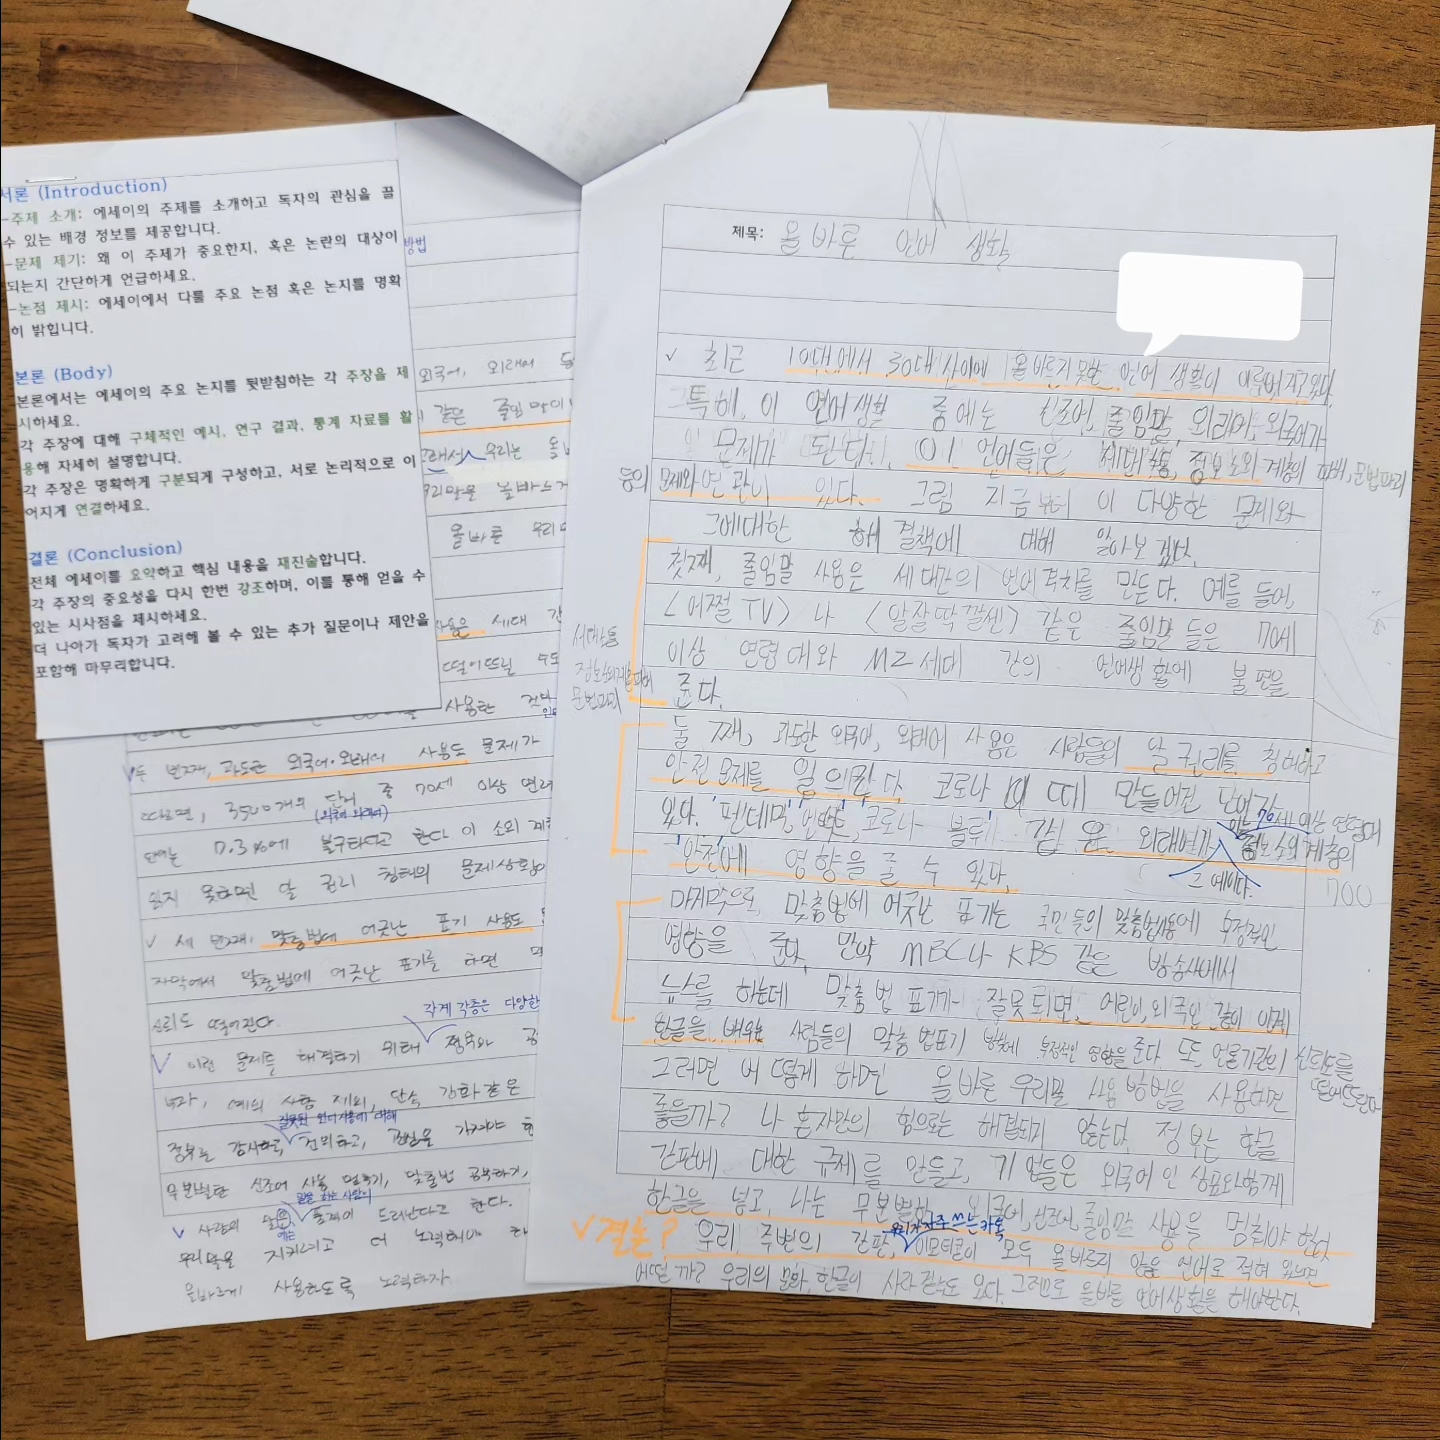 서론 (Introduction)
-주제 소개: 에세이의 주제를 소개하고 독자의 관심을 끌
수 있는 배경 정보를 제공합니다.
-문제 제기: 왜 이 주제가 중요한지, 혹은 논란의 대상이
되는지 간단하게 언급하세요.
-논점 제시: 에세이에서 다룰 주요 논점 혹은 논지를 명확
히 밝힙니다.
본론 (Body)
본론에서는 에세이의 주요 논지를 뒷받침하는 각 주장을 제
시하세요.
각 주장에 대해 구체적인 예시, 연구 결과, 통계 자료를 활
용해 자세히 설명합니다.
각 주장은 명확하게 구분되게 구성하고, 서로 논리적으로 이
어지게 연결하세요.
결론 (Conclusion)
전체 에세이를 요약하고 핵심 내용을 재진술합니다.
각 주장의 중요성을 다시 한번 강조하며, 이를 통해 얻을 수
있는 시사점을 제시하세요.
더 나아가 독자가 고려해 볼 수 있는 추가 질문이나 제안을
포함해 마무리합니다.
방법
외국어, 외래어
같은 줄임말이
그래서 우리는 올
우리말을 올바르게
올바른 우리
세대 간
떨어뜨릴 수도
사용한 것다
두 번째, 과도한 외국어·외래어 사용도 문제가
따르면, 3500개의 단어 중 70세 이상 연
(외국어 외래어)
단어는 0.3%에 불구하다고 한다 이 소외 계
쉽지 못하면 알 권리 침해의 문제상황
세 번째, 맞춤법에 어긋난 표기 사용도
자막에서 맞춤법에 어긋난 표기를 하면
신뢰도 떨어진다.
각계 각층은 다양한
이런 문제를 해결하기 위해 정부와
부과, 예외 사항 제외, 단속 강화 같은
잘못된 언어사용에 대해
정부는 감시하고, 건의하고, 관심을 가져야
무분별한 신조어 사용 멈추기, 맞춤법 공부하기,
말을 하는 사람의
사람의 말 에는 품격이 드러난다고 한다.
우리말을 지키려고 더 노력해야
올바르게 사용하도록 노력하자
제목: 올바루 언어 생활
최근 10대에서 30대 사이에 올바르지 못한 언어 생활이 이루어지고 있다.
특히, 이 언어생활 중에는 신조어, 줄임말, 외래어, 외국어가
문제가 된다. 이 언어들은 정보 소외 계층의 피해, 문법파괴
등의 문제와 연관이 있다. 그럼 지금부터 이 다양한 문제와
그에대한 해결책에 대해 알아보겠다.
첫째, 줄임말 사용은 세대간의 언어격차를 만든다. 예를 들어,
<어쩔TV>나 <알잘딱깔센> 같은 줄임말들은 70세
이상 연령대와 MZ세대 간의 언어생활에 불편을
준다.
세대차이
정보소외계층피해
문법파괴
둘째, 과도한 외국어, 외래어 사용은 사람들의 알 권리를 침해하고
안전 문제를 일으킨다. 코로나 때 만들어진 단어가
있다. '펜데믹', '언택트', '코로나 블루' 같은 외래어가 정보소외계층의
70세 이상 연령대
그 예이다.
'안전'에 영향을 줄 수 있다.
700
마지막으로, 맞춤법에 어긋난 표기는 국민들의 맞춤법사용에 부정적인
영향을 준다. 만약 MBC나 KBS 같은 방송사에서
뉴스를 하는데 맞춤법 표기가 잘못되면, 어린이, 외국인 같이 이제
한글을 배우는 사람들의 맞춤법표기 방식에 부정적인 영향을 준다. 또, 언론기관의 신뢰도를
떨어뜨린다.
그러면 어떻게 하면 올바른 우리말 사용 방법을 사용하면
좋을까? 나 혼자만의 힘으로는 해결되지 않는다. 정부는 한글
간판에 대한 규제를 만들고, 기업들은 외국어인 상표와함께
한글을 넣고, 나는 무분별한 외국어, 신조어, 줄임말 사용을 멈춰야 한다.
우리가 자주 쓰는 카톡
결론? 우리 주변의 간판, 이모티콘이 모두 올바르지 않은 언어로 적혀 있으면
어떨까? 우리의 말과, 한글이 사라질 수도 있다. 그러므로 올바른 언어생활을 해야한다.